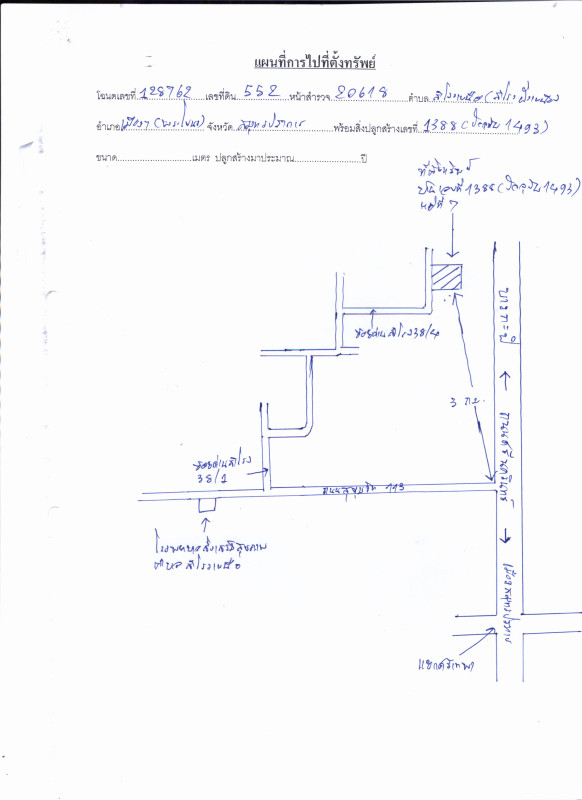 แผนที่การไปที่ตั้งทรัพย์
โฉนดเลขที่ 128762 เลขที่ดิน 552 หน้าสำรวจ 20618 ตำบล สำโรงเหนือ (สำโรงฝั่งเหนือ)
อำเภอ เมืองฯ (พระโขนง) จังหวัด สมุทรปราการ พร้อมสิ่งปลูกสร้างเลขที่ 1388 (ปัจจุบัน 1493)
ขนาด เมตร ปลูกสร้างมาประมาณ ปี
ที่ตั้งทรัพย์
บ้านเลขที่ 1388 (ปัจจุบัน 1493)
หมู่ที่ 7
บางกะปิ
ซอยด่านสำโรง 38/4
3 กม.
ถนนศรีนครินทร์
ซอยด่านสำโรง
38/1
ถนนสุขุมวิท 113
โรงพยาบาลส่งเสริมสุขภาพ
ตำบลสำโรงเหนือ
เมืองสมุทรปราการ
แยกศรีเทพา